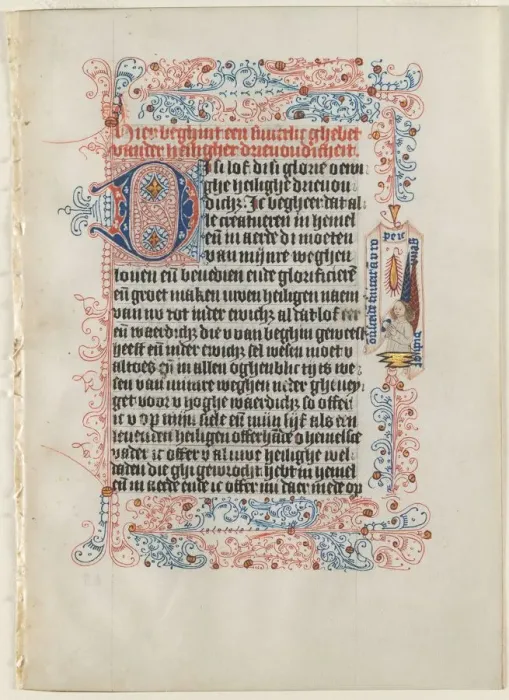 Hier beghint een suverlic ghebet
vander heiligher drievoudicheit.
U si lof di si glorie o ewi
ghe heilighe drievou
dichz. Ic begheer dat al
le creatueren in hemel
eñ in aerde di moeten
van mijnre weghen
loven eñ benedien ende glorificierē
eñ groet maken uwen heiligen naem
van nu tot inder ewichz al dat lof
eñ waerdichz die u van beghin geweest
heeft eñ inder ewichz sel wesen moet u
altoes in allen oghenblic tijts we
sen van minre weghen
get voor u hoghe waerdichz so offer
ic u op mijn siele eñ mijn lijf als een
levenden heiligen offerhāde o hemelsce
vader ic offer u al uwe heilighe wel
daden die ghi gewrocht hebt in hemel
eñ in aerde ende ic offer mede op